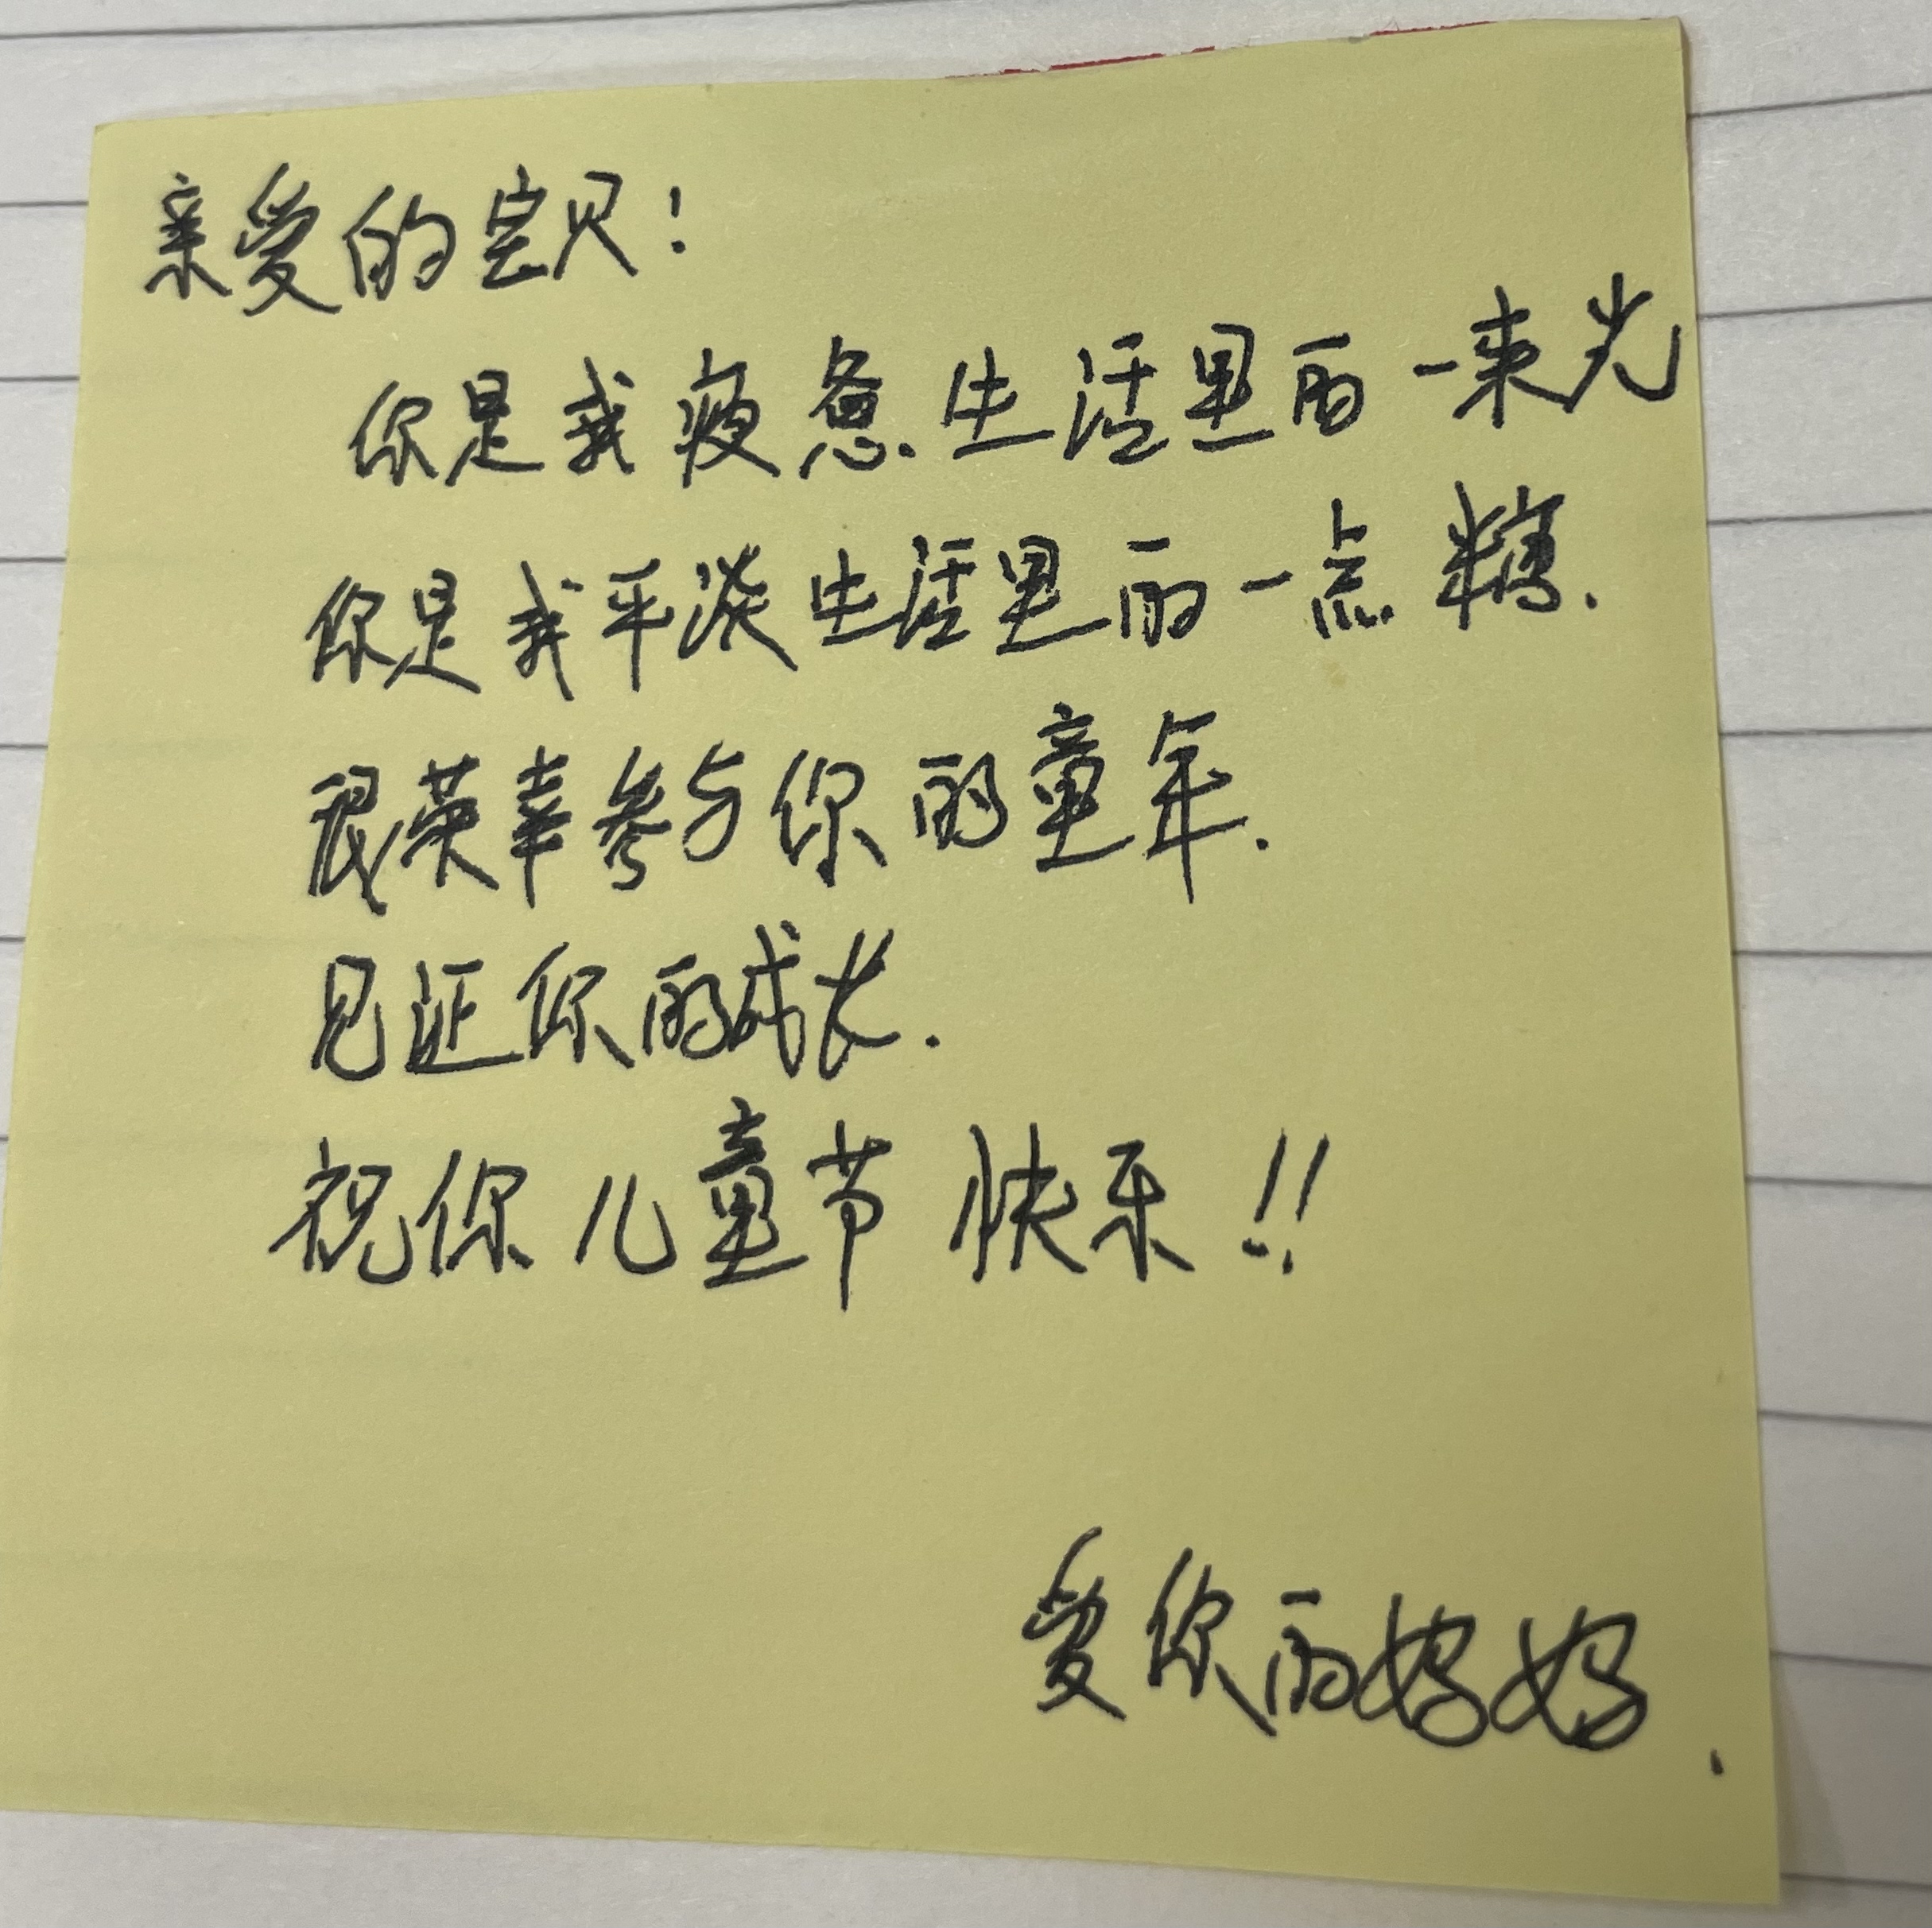 亲爱的宝贝！
你是我疲惫生活里的一束光
你是我平淡生活里的一点糖.
很荣幸参与你的童年.
见证你的成长.
祝你儿童节快乐!!
爱你的妈妈.